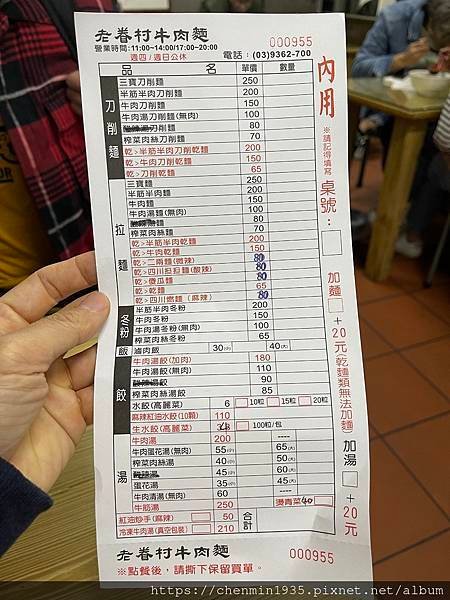 老眷村牛肉麵
000955
營業時間:11:00~14:00/17:00~20:00
週四/週日公休
電話:(03)9362-700
品 名 單價 數量
刀削麵
三寶刀削麵 250
半筋半肉刀削麵 200
牛肉刀削麵 150
牛肉湯刀削麵(無肉) 100
刀削麵 80
榨菜肉絲刀削麵 70
乾>半筋半肉刀削乾麵 200
乾>牛肉刀削乾麵 150
乾>刀削乾麵 65
拉麵
三寶麵 250
半筋半肉麵 200
牛肉麵 150
牛肉湯麵(無肉) 100
80
榨菜肉絲麵 70
乾>半筋半肉乾麵 200
乾>牛肉乾麵 150
乾>二兩麵(微辣) 80
乾>四川担担麵(酸辣) 80
乾>傻瓜麵 80
乾>乾麵 65
乾>四川燃麵(麻辣) 80
冬粉
半筋半肉冬粉 200
牛肉冬粉 150
牛肉湯冬粉(無肉) 100
榨菜肉絲冬粉 65
飯
滷肉飯 30(小) 40(大)
餃
牛肉湯餃(加肉) 180
牛肉湯餃(無肉) 110
酸辣湯餃 90
榨菜肉絲湯餃 85
水餃(高麗菜) 6 10粒 15粒 20粒
麻辣紅油水餃(10顆) 110
生水餃(高麗菜) 100粒/包
湯
牛肉湯 200 ----
牛肉蛋花湯(無肉) 55(小) 65(大)
榨菜肉絲湯 40(小) 50(大)
酸辣湯 45(小) 60(大)
蛋花湯 35(小) 45(大)
牛肉清湯(無肉) 60 ----
牛筋湯 250 燙青菜40
紅油炒手(麻辣) 50 合計
冷凍牛肉湯(真空包裝) 210
老眷村牛肉麵
000955
※點餐後,請撕下保留買單。
內用
※請記得填寫
桌號:
加麵 +20元(乾麵類無法加麵)
加湯 +20元
https://chenmin1935.pixnet.net/album